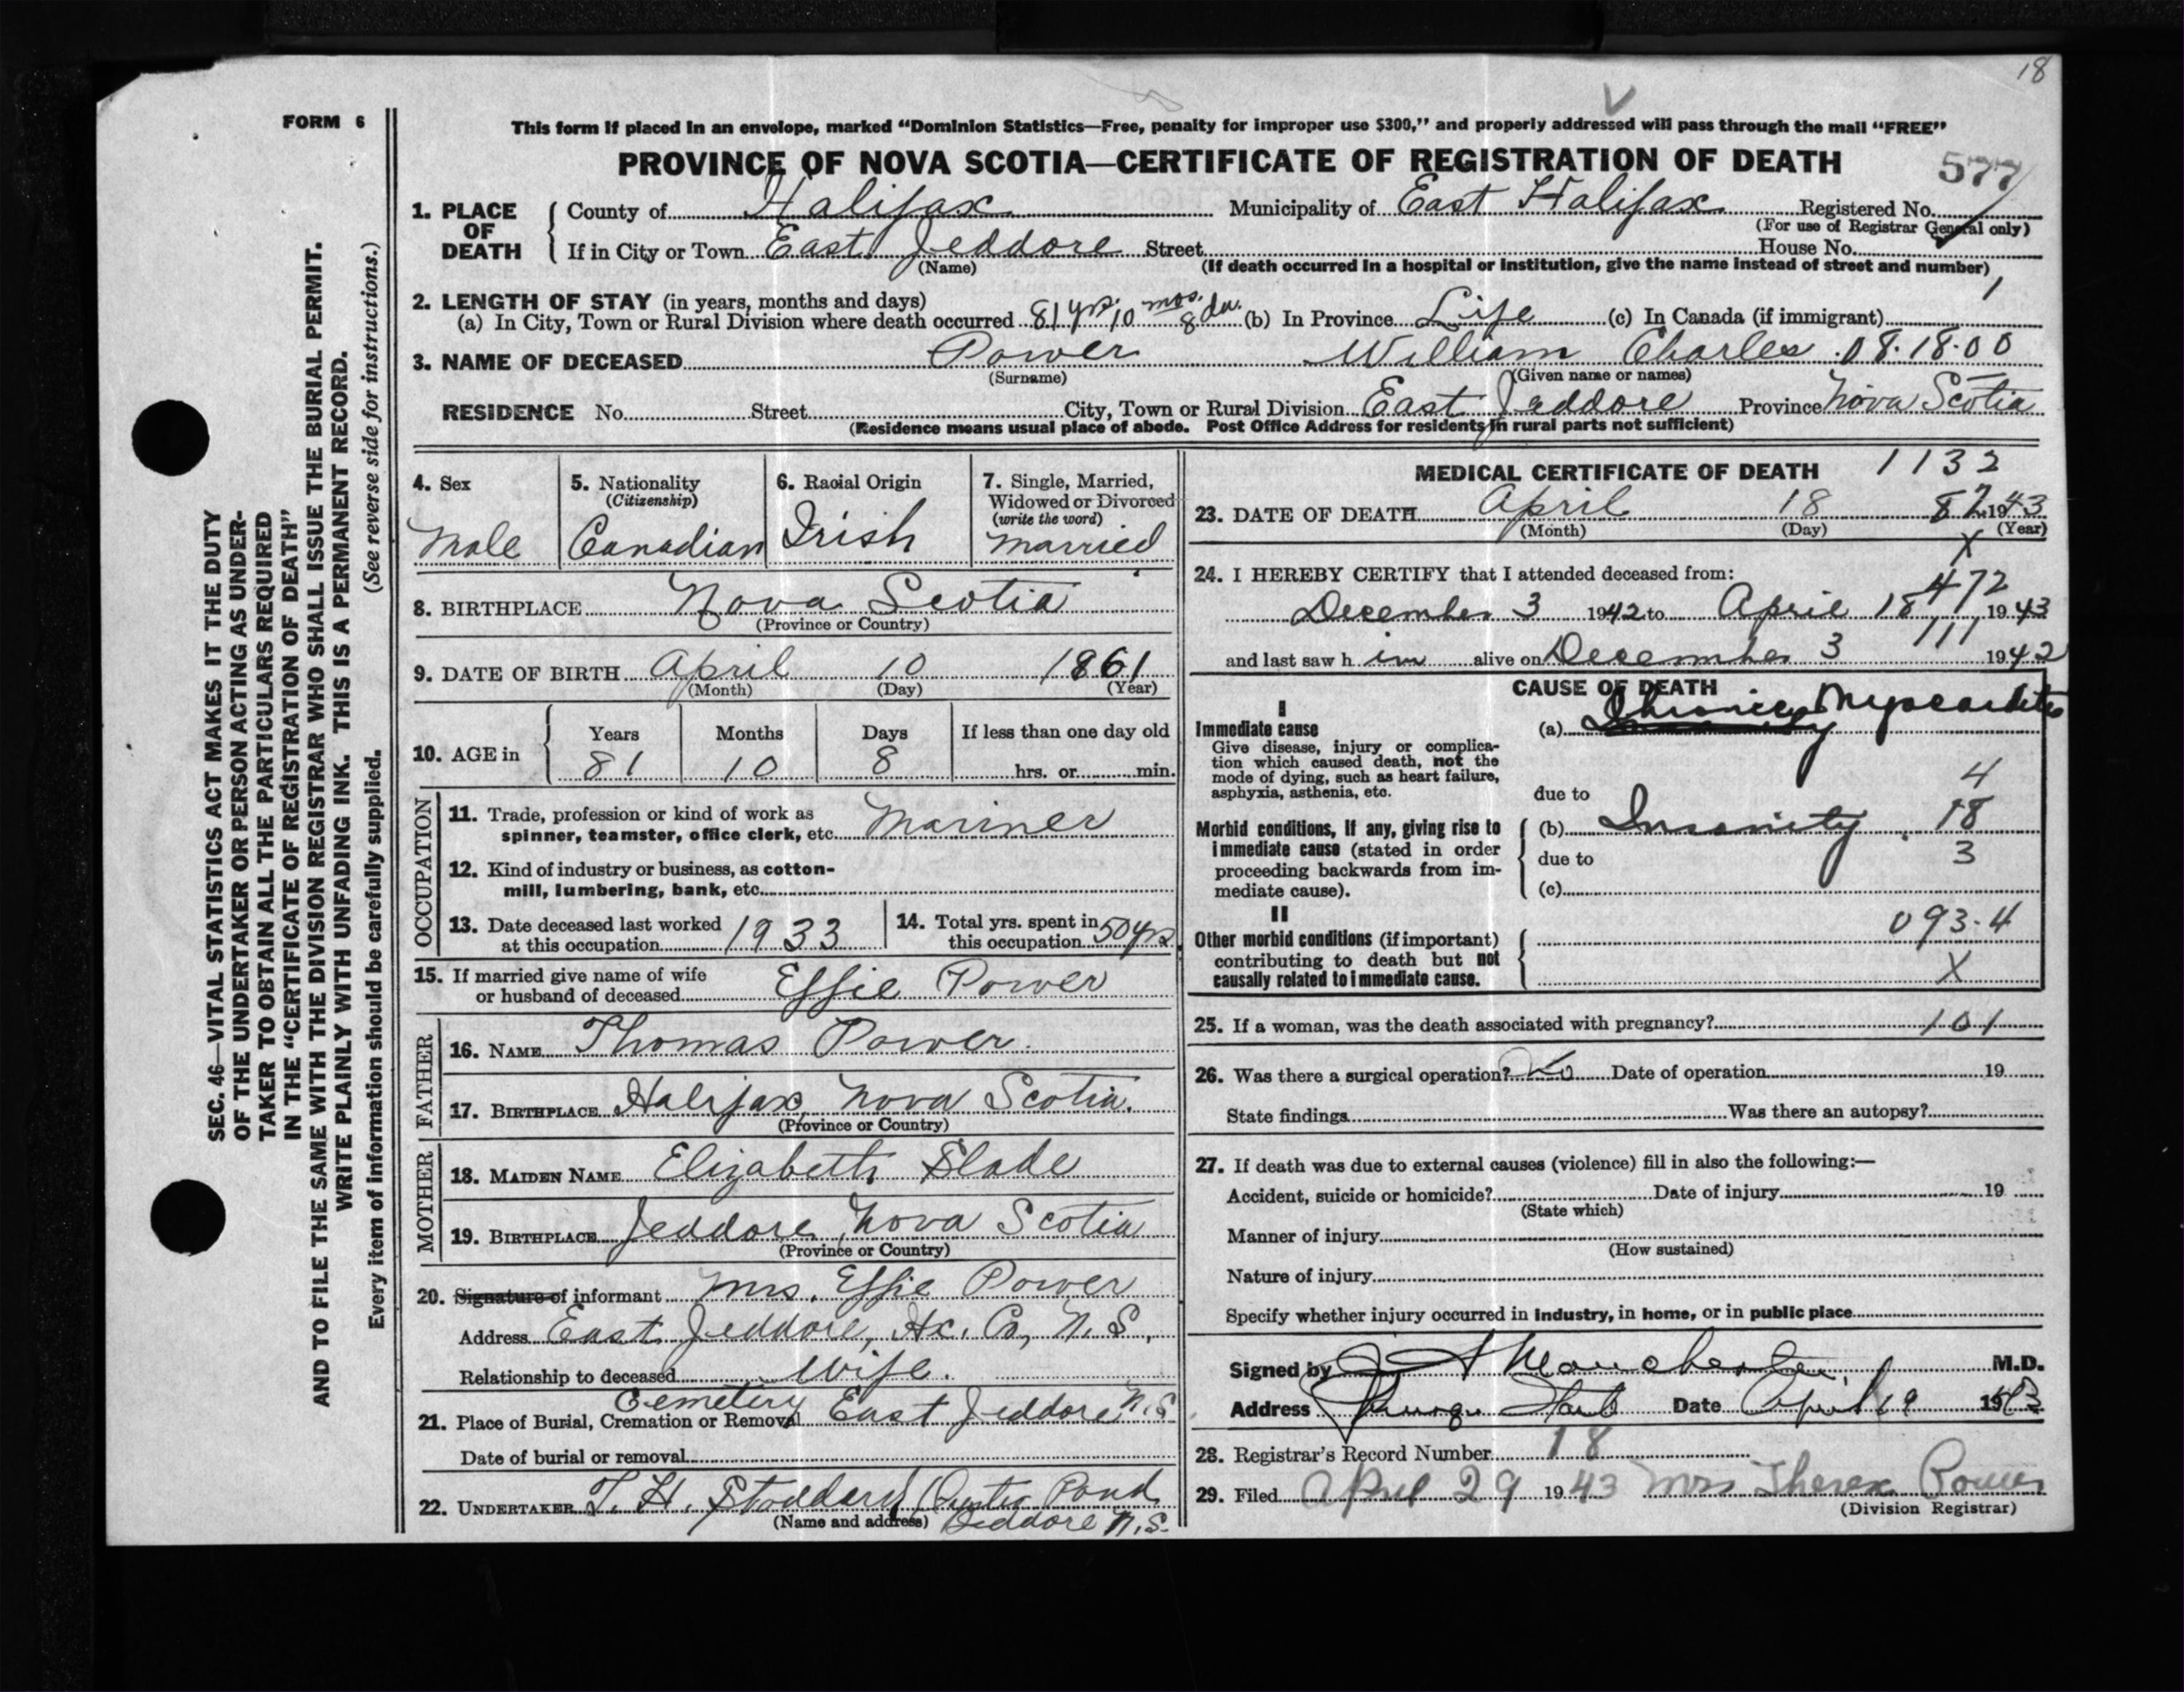 18
FORM 6
This form if placed in an envelope, marked “Dominion Statistics—Free, penalty for improper use $300,” and properly addressed will pass through the mail “FREE”
PROVINCE OF NOVA SCOTIA—CERTIFICATE OF REGISTRATION OF DEATH
577
1. PLACE OF DEATH County of Halifax Municipality of East Halifax Registered No.
(For use of Registrar General only)
If in City or Town East Jeddore Street House No.
(Name) (If death occurred in a hospital or institution, give the name instead of street and number)
2. LENGTH OF STAY (in years, months and days)
(a) In City, Town or Rural Division where death occurred 81 yrs. 10 mos. 8 da. (b) In Province Life (c) In Canada (if immigrant)
3. NAME OF DECEASED Power William Charles 08·18·00
(Surname) (Given name or names)
RESIDENCE No. Street City, Town or Rural Division East Jeddore Province Nova Scotia
(Residence means usual place of abode. Post Office Address for residents in rural parts not sufficient)
SEC. 46—VITAL STATISTICS ACT MAKES IT THE DUTY
OF THE UNDERTAKER OR PERSON ACTING AS UNDER-
TAKER TO OBTAIN ALL THE PARTICULARS REQUIRED
IN THE “CERTIFICATE OF REGISTRATION OF DEATH”
AND TO FILE THE SAME WITH THE DIVISION REGISTRAR WHO SHALL ISSUE THE BURIAL PERMIT.
WRITE PLAINLY WITH UNFADING INK. THIS IS A PERMANENT RECORD.
Every item of information should be carefully supplied. (See reverse side for instructions.)
4. Sex
Male
5. Nationality
(Citizenship)
Canadian
6. Racial Origin
Irish
7. Single, Married,
Widowed or Divorced
(write the word)
Married
8. BIRTHPLACE Nova Scotia
(Province or Country)
9. DATE OF BIRTH April 10 1861
(Month) (Day) (Year)
10. AGE in Years Months Days If less than one day old
81 10 8 hrs. or min.
OCCUPATION
11. Trade, profession or kind of work as
spinner, teamster, office clerk, etc. Mariner
12. Kind of industry or business, as cotton-
mill, lumbering, bank, etc.
13. Date deceased last worked
at this occupation 1933
14. Total yrs. spent in
this occupation 50 yrs
15. If married give name of wife
or husband of deceased Effie Power
FATHER
16. NAME Thomas Power
17. BIRTHPLACE Halifax, Nova Scotia.
(Province or Country)
MOTHER
18. MAIDEN NAME Elizabeth Slade
19. BIRTHPLACE Jeddore, Nova Scotia
(Province or Country)
20. Signature of informant Mrs. Effie Power
Address East Jeddore, Hx. Co, N.S.
Relationship to deceased Wife.
21. Place of Burial, Cremation or Removal Cemetery East Jeddore N.S.
Date of burial or removal
22. UNDERTAKER T. H. Stoddard Oyster Pond
(Name and address) Jeddore N.S.
MEDICAL CERTIFICATE OF DEATH 1132
23. DATE OF DEATH April 18 82 1943
(Month) (Day) (Year)
X
24. I HEREBY CERTIFY that I attended deceased from:
472
December 3 1942 to April 18 1943
111
and last saw h im alive on December 3 1942
CAUSE OF DEATH
I
Immediate cause
Give disease, injury or complica-
tion which caused death, not the
mode of dying, such as heart failure,
asphyxia, asthenia, etc.
(a) Chronic Myocarditis
4
due to
Morbid conditions, if any, giving rise to
immediate cause (stated in order
proceeding backwards from im-
mediate cause).
(b) Insanity 18
due to 3
(c)
II
Other morbid conditions (if important)
contributing to death but not
causally related to immediate cause.
093·4
X
25. If a woman, was the death associated with pregnancy? 101
26. Was there a surgical operation? No Date of operation 19
State findings Was there an autopsy?
27. If death was due to external causes (violence) fill in also the following:—
Accident, suicide or homicide? Date of injury 19
(State which)
Manner of injury
(How sustained)
Nature of injury
Specify whether injury occurred in industry, in home, or in public place
Signed by Manchester M.D.
Address Date April 19 1943
28. Registrar's Record Number 18
29. Filed April 29 1943 Mrs Power
(Division Registrar)